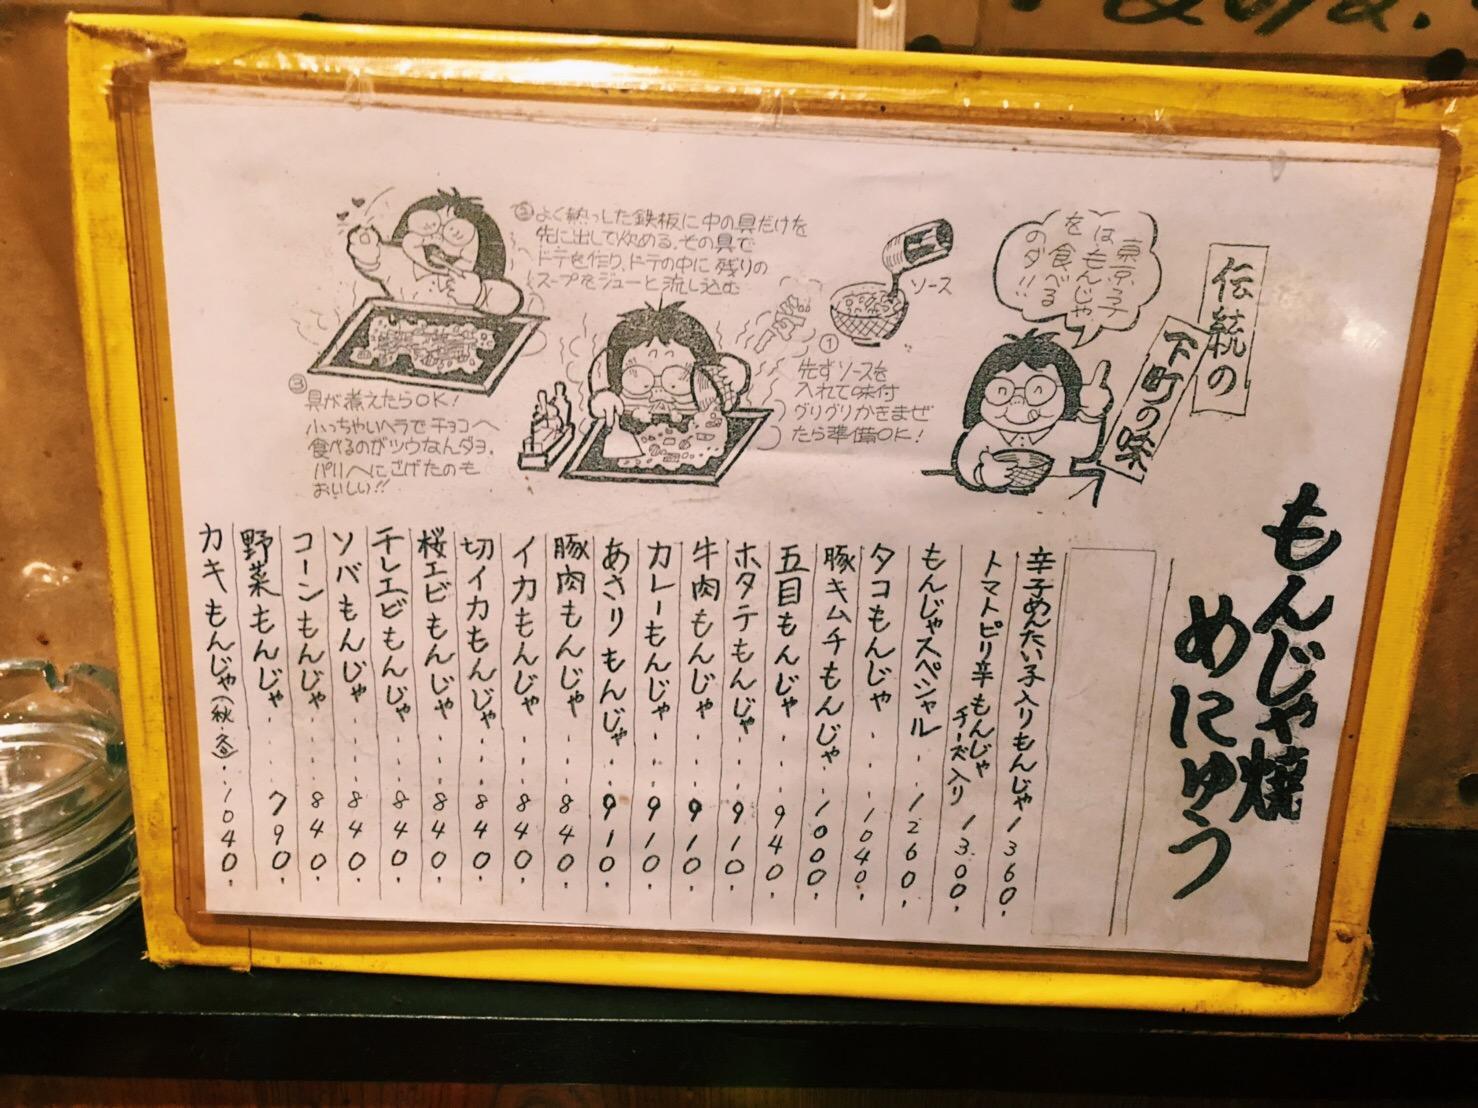 伝統の
下町の味
もんじゃ焼
めにゅう
東京子
はもんじゃ
を食べる
のダ!!
ソース
①
先ずソースを
入れて味付
グリグリかきまぜ
たら準備OK!
②よく熱っした鉄板に中の具だけを
先に出して炒める。その具で
ドテを作り、ドテの中に残りの
スープをジューと流し込む
③
具が煮えたらOK!
小っちゃいヘラでチョコへ
食べるのがツウなんダョ。
パリへにこげたのも
おいしい!!
辛子めんたい子入りもんじゃ1360.
トマトピリ辛もんじゃ
チーズ入り 1300.
もんじゃスペシャル・・1260.
タコもんじゃ・・・1040.
豚キムチもんじゃ・1000.
五目もんじゃ・・・940.
ホタテもんじゃ・・・910.
牛肉もんじゃ・・・910.
カレーもんじゃ・・・910.
あさりもんじゃ・・910.
豚肉もんじゃ・・・840.
イカもんじゃ・・・840.
切イカもんじゃ・・・840.
桜エビもんじゃ・・・840.
干しエビもんじゃ・・・840.
ソバもんじゃ・・・840.
コーンもんじゃ・・・840.
野菜もんじゃ・・・790.
カキもんじゃ(秋・冬)・1040.